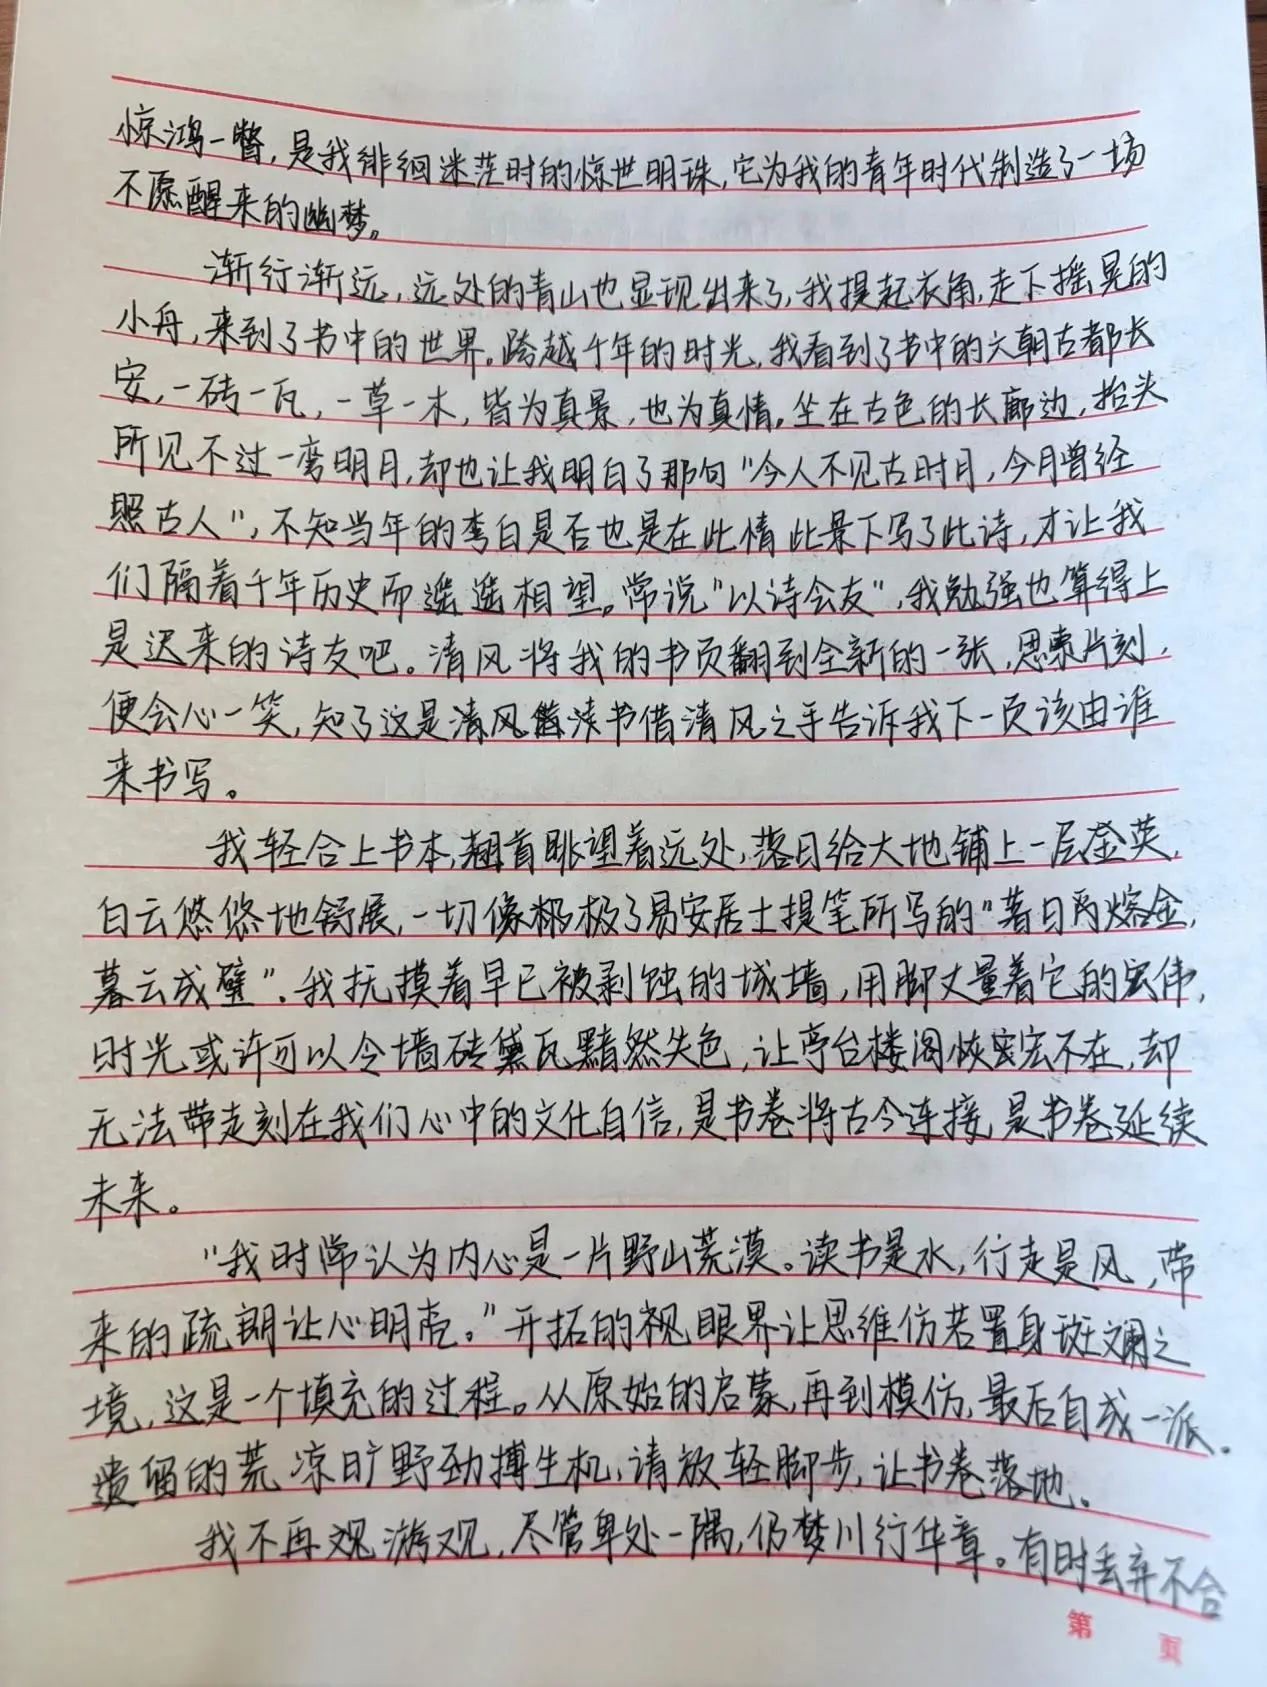 惊鸿一瞥，是我徘徊迷茫时的惊世明珠，它为我的青年时代制造了一场
不愿醒来的幽梦。
渐行渐远，远处的青山也显现出来了，我提起衣角，走下摇晃的
小舟，来到了书中的世界。跨越千年的时光，我看到了书中的六朝古都长
安，一砖一瓦，一草一木，皆为真景，也为真情。坐在古色的长廊边，抬头
所见不过一弯明月，却也让我明白了那句“今人不见古时月，今月曾经
照古人”，不知当年的李白是否也是在此情此景下写了此诗，才让我
们隔着千年历史而遥遥相望。常说“以诗会友”，我勉强也算得上
是迟来的诗友吧。清风将我的书页翻到全新的一张，思索片刻，
便会心一笑，知了这是清风读书借清风之手告诉我下一页该由谁
来书写。
我轻合上书本，翘首眺望着远处，落日给大地铺上一层金英，
白云悠悠地舒展，一切像极了易安居士提笔所写的“著日两熔金，
暮云成璧”。我抚摸着早已被剥蚀的城墙，用脚丈量着它的宏伟，
时光或许可以令墙砖黛瓦黯然失色，让亭台楼阁恢宏不在，却
无法带走刻在我们心中的文化自信，是书卷将古今连接，是书卷延续
未来。
“我时常认为内心是一片野山荒漠。读书是水，行走是风，带
来的疏朗让心明亮。”开拓的视眼界让思维仿若置身斑斓之
境，这是一个填充的过程。从原始的启蒙，再到模仿，最后自成一派。
遗留的荒凉旷野劲搏生机，请放轻脚步，让书卷落地。
我不再观游观，尽管卑处一隅，仍梦川行华章。有时丢弃不合
第 页